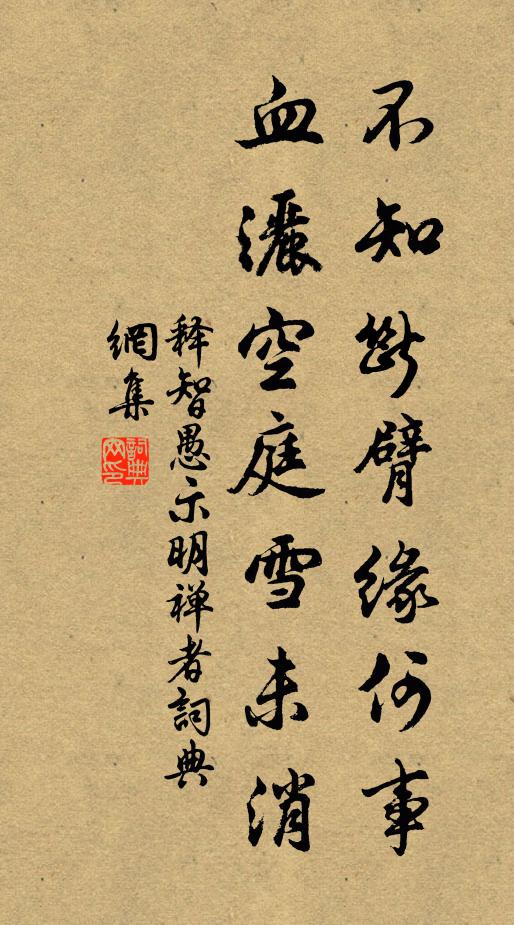 不知斷臂緣何事
血灑空庭雪未消
释智愚示明禅者詞典
網集
詞典
网印